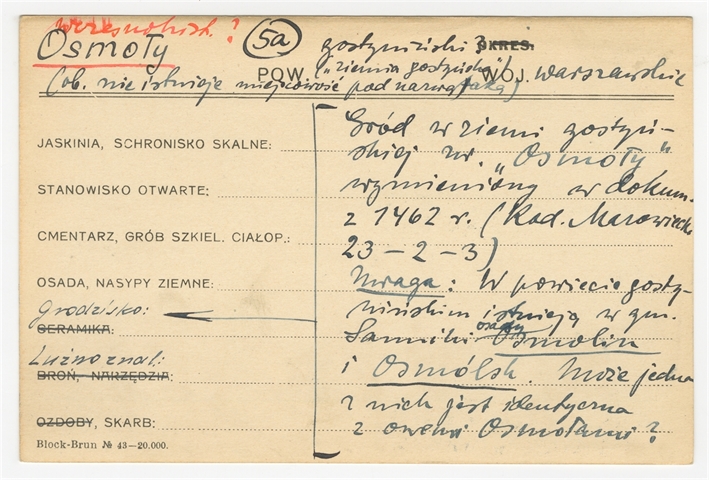 wczesnohist. ?
Osmoły
5a
gostyniński ? OKRES:
POW. ("ziemia gostyńska") WOJ. warszawskie
(ob. nie istnieje miejscowość pod nazwą taką)
JASKINIA, SCHRONISKO SKALNE:
STANOWISKO OTWARTE:
CMENTARZ, GRÓB SZKIEL. CIAŁOP.:
OSADA, NASYPY ZIEMNE:
Grodzisko:
CERAMIKA:
Luźno znal:
BROŃ, NARZĘDZIA:
OZDOBY, SKARB:
Block-Brun № 43—20.000.
Gród w ziemi gostyń-
skiej zw. "Osmoły"
wzmieniony w dokum.
z 1462 r. (Kod. Mazowiecki
23 — 2 — 3)
Uwaga: W powiecie gosty-
nińskim istnieją w gm.
Sanniki osady Osmolin
i Osmólsk. Może jedna
z nich jest identyczna
z owemi Osmołami?